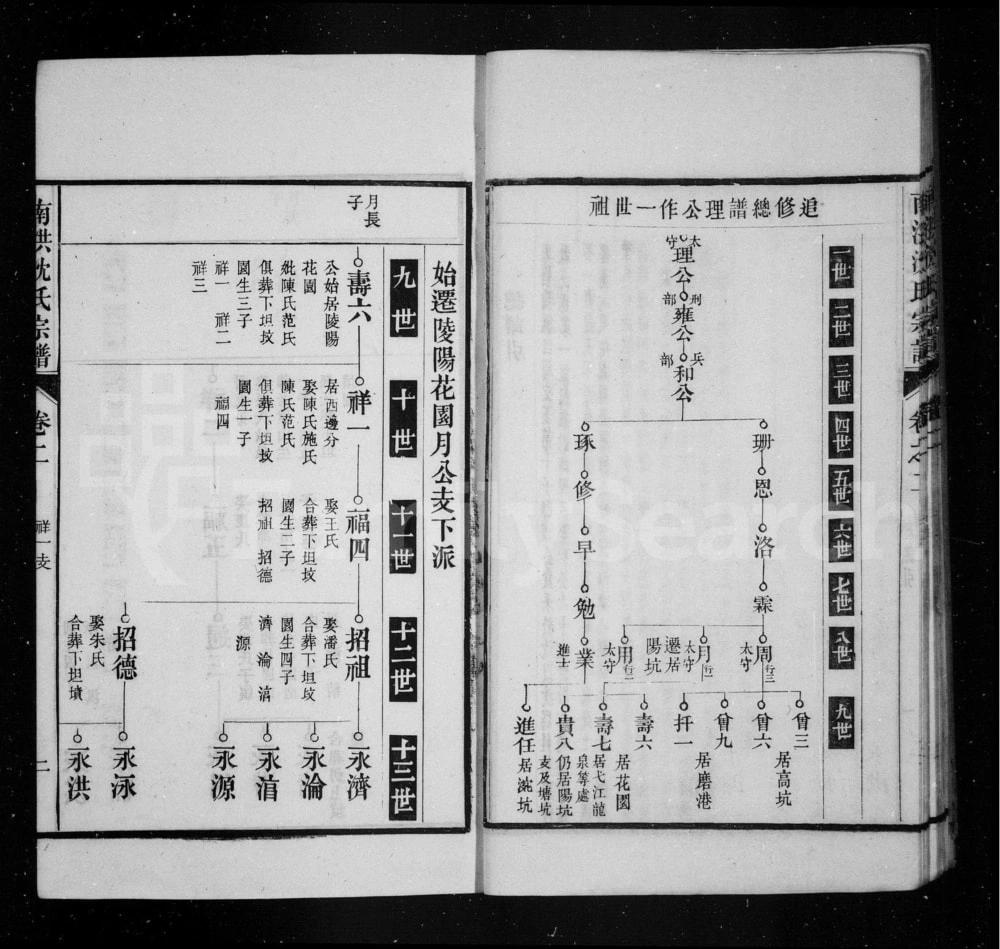 追修總譜理公作一世祖
一世
二世
三世
四世
五世
六世
七世
八世
九世
太守
理公
刑部
雍公
兵部
和公
珊
恩
洛
霖
琢
修
早
勉
周
行三
太守
月
行一
太守
遷居陽坑
用
行二
太守
業
進士
曾三
居高坑
曾六
曾九
居磨港
扦一
壽六
居花園
壽七
居弋江龍
泉等處
貴八
仍居陽坑
支及塘坑
進任
居沈坑
始遷陵陽花園月公支下派
九世
十世
十一世
十二世
十三世
月長子
壽六
公始居陵陽
花園
妣陳氏范氏
俱葬下坦坟
園生三子
祥一 祥二
祥三
祥一
居西邊分
娶陳氏施氏
陳氏范氏
俱葬下坦坟
園生一子
福四
福四
娶王氏
合葬下坦坟
園生二子
招祖 招德
招祖
娶潘氏
合葬下坦坟
園生四子
濟 淪 湇
源
招德
娶朱氏
合葬下坦墳
永濟
永淪
永湇
永源
永泳
永洪
南洪沈氏宗譜
卷之二
祥一支
二